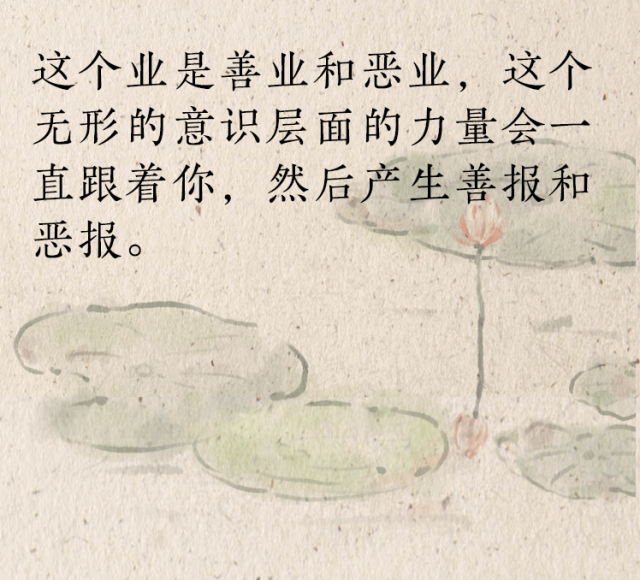 这个业是善业和恶业，这个
无形的意识层面的力量会一
直跟着你，然后产生善报和
恶报。